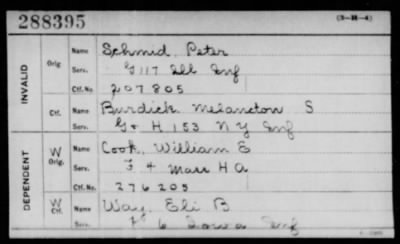 288395 (3-38-4)
INVALID
Orig Name Schmid, Peter
Serv. G 117 Ill Inf
Ctf. No. 207805
Ctf. Name Burdick Melancton S
G & H 153 N Y Inf
DEPENDENT
W Orig. Name Cook, William E
Serv. F 4 Mass H A
Ctf. No. 276205
W Ctf. Name Way, Eli B
6 Iowa Inf